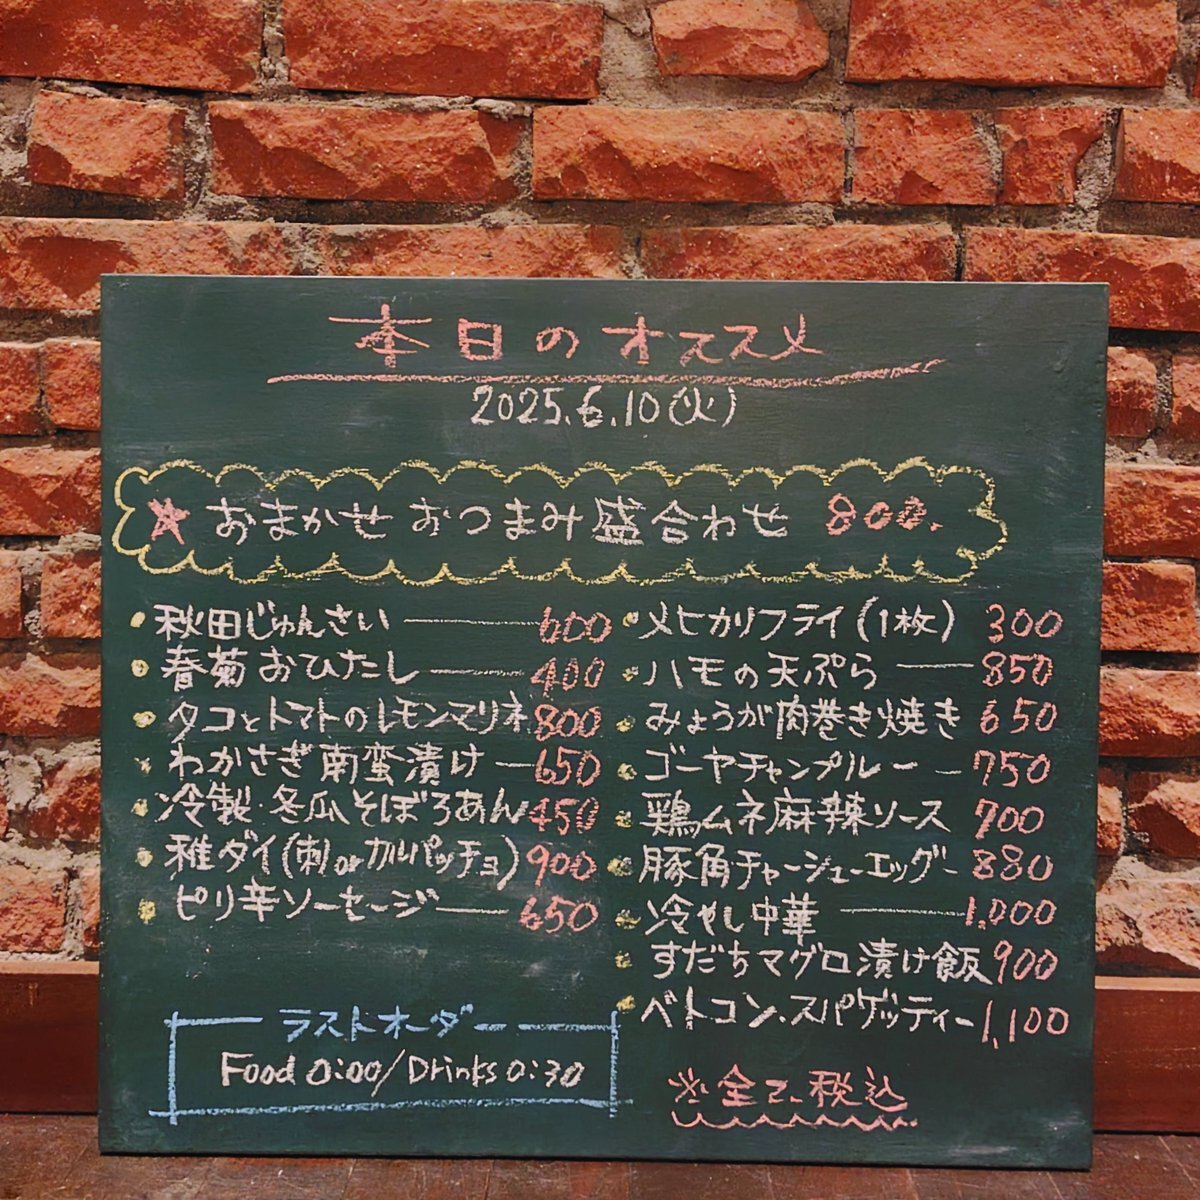 本日のオススメ
2025.6.10(火)
おまかせ おつまみ盛合わせ 800.
秋田じゅんさい 600
春菊おひたし 400
タコとトマトのレモンマリネ 800
わかさぎ南蛮漬け 650
冷製・冬瓜そぼろあん 450
稚ダイ(刺orカルパッチョ) 900
ピリ辛ソーセージ 650
メヒカリフライ(1枚) 300
ハモの天ぷら 850
みょうが肉巻き焼き 650
ゴーヤチャンプルー 750
鶏ムネ麻辣ソース 700
豚角チャーシューエッグ 880
冷やし中華 1,000
すだちマグロ漬け飯 900
ベトコン・スパゲッティー 1,100
ラストオーダー
Food 0:00/Drinks 0:30
※全て税込